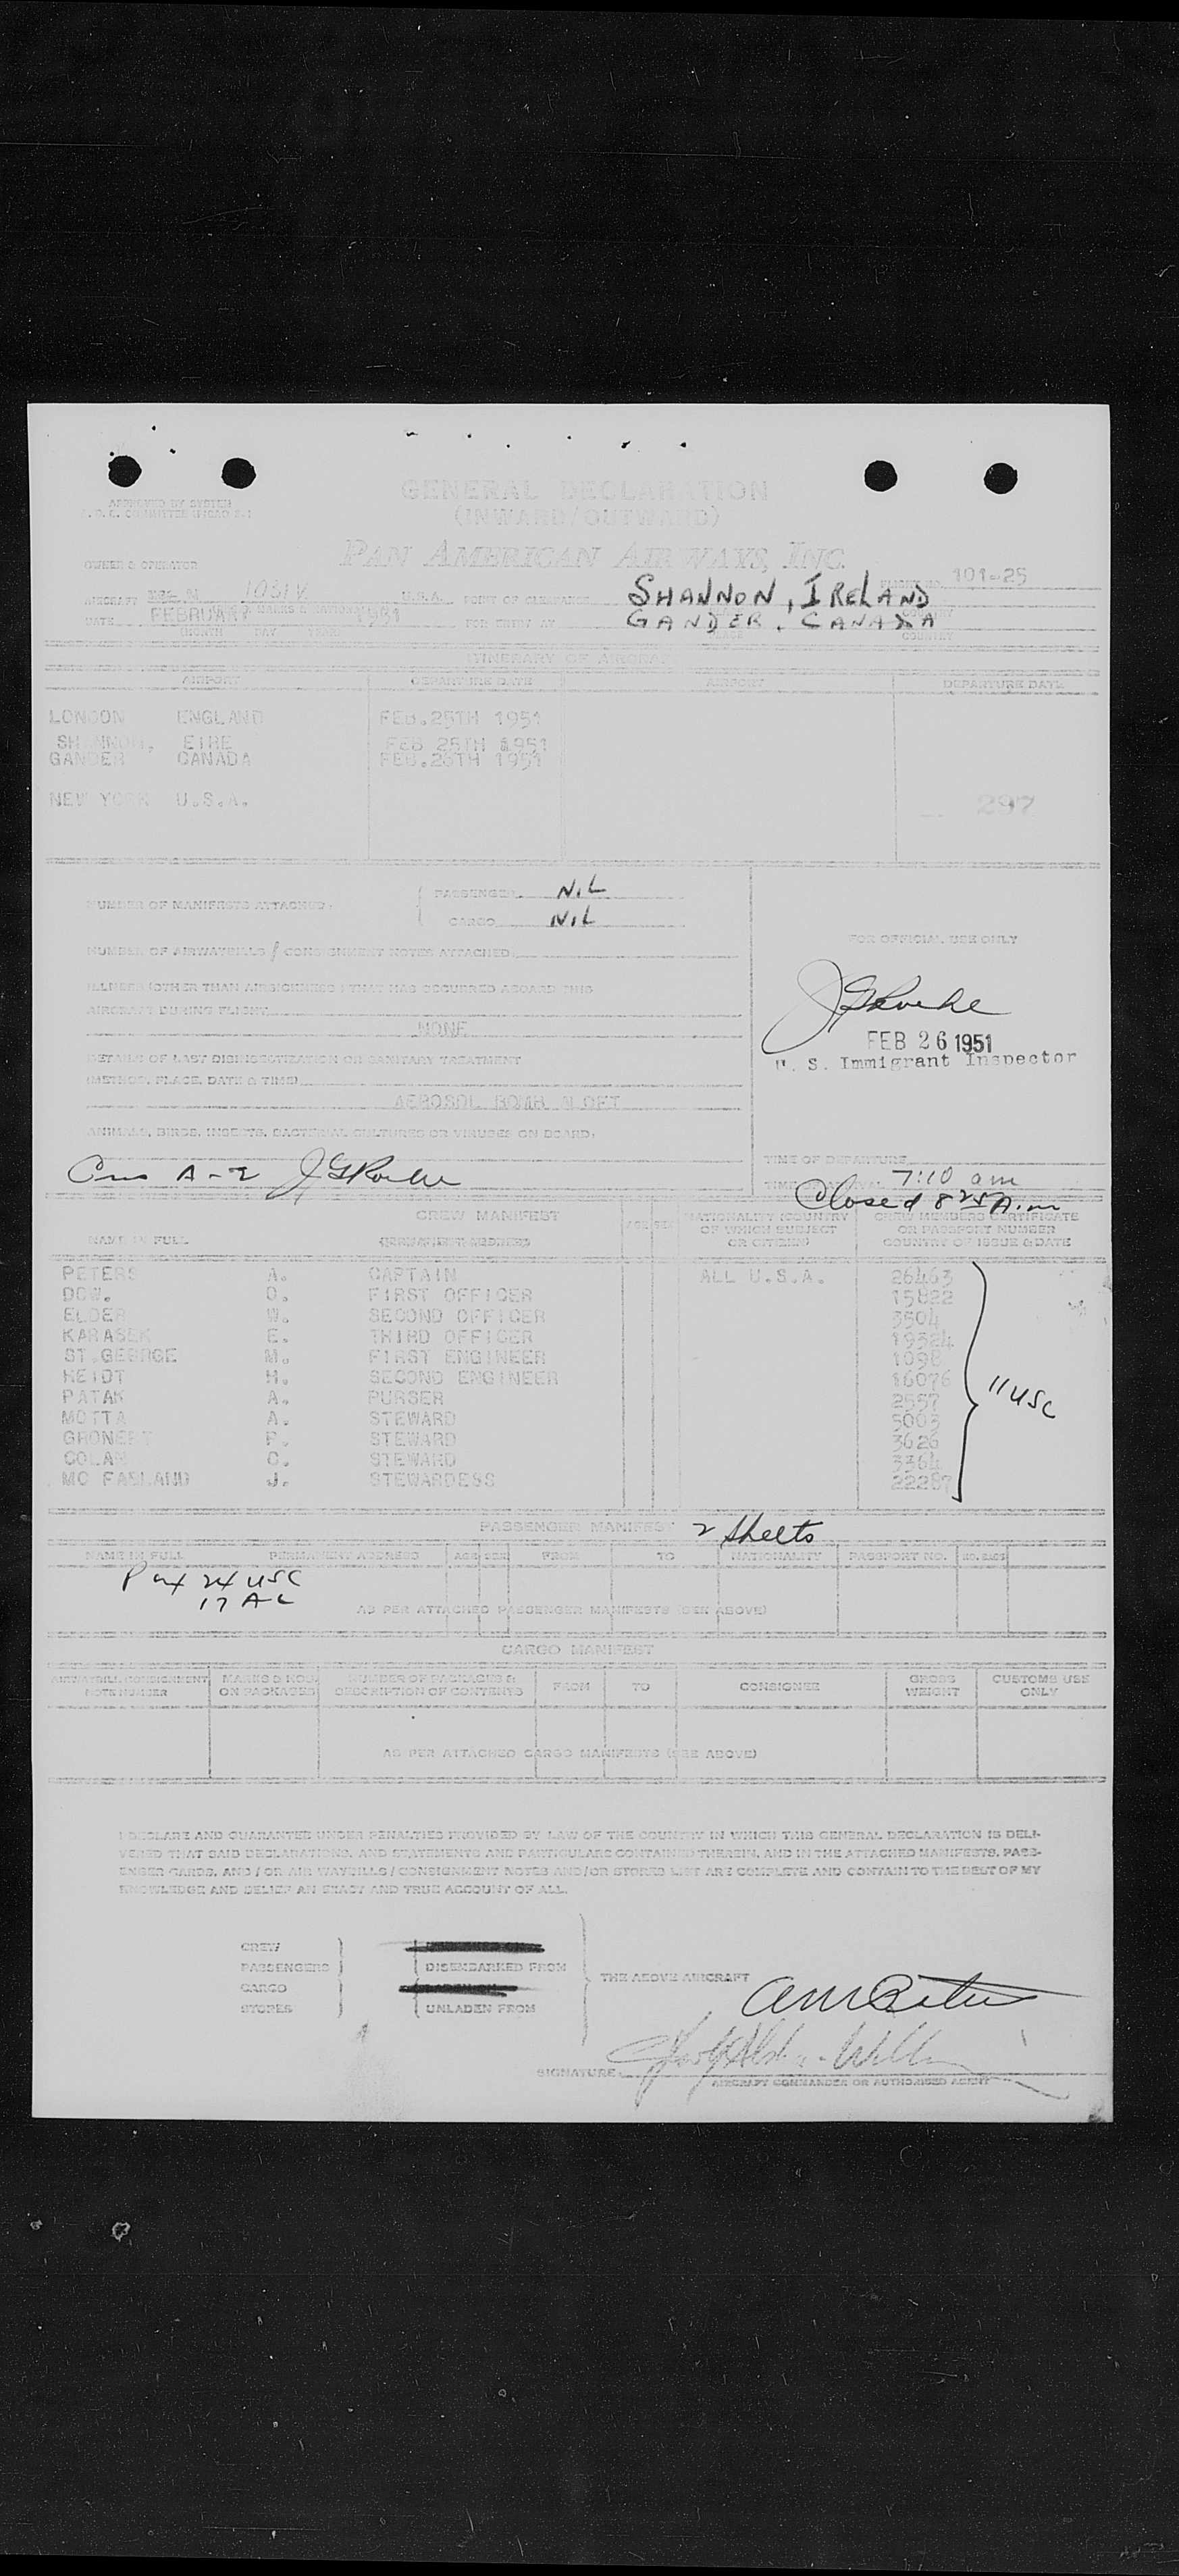 GENERAL DECLARATION
(INWARD/OUTWARD)
APPROVED BY SYSTEM
OWNER & OPERATOR PAN AMERICAN AIRWAYS, INC.
101-25
AIRCRAFT 1031V U.S.A. POINT OF CLEARANCE SHANNON, IRELAND
DATE FEBRUARY 1951 FOR ENTRY AT GANDER, CANADA
(MONTH DAY YEAR) PLACE COUNTRY
ITINERARY OF AIRCRAFT
AIRPORT DEPARTURE DATE AIRPORT DEPARTURE DATE
LONDON ENGLAND FEB.25TH 1951
SHANNON, EIRE FEB 25TH 1951
GANDER CANADA FEB.26TH 1951
NEW YORK U.S.A. 297
NUMBER OF MANIFESTS ATTACHED: PASSENGER NIL
CARGO NIL
FOR OFFICIAL USE ONLY
NUMBER OF AIRWAYBILLS / CONSIGNMENT NOTES ATTACHED:
ILLNESS (OTHER THAN AIRSICKNESS) THAT HAS OCCURRED ABOARD THIS
AIRCRAFT DURING FLIGHT:
NONE
FEB 26 1951
U. S. Immigrant Inspector
DETAILS OF LAST DISINSECTIZATION OR SANITARY TREATMENT
(METHOD, PLACE, DATE & TIME)
AEROSOL BOMB ALOFT
ANIMALS, BIRDS, INSECTS, BACTERIAL CULTURES OR VIRUSES ON BOARD:
TIME OF DEPARTURE
A-2 7:10 am
Closed 8 25 A.m
CREW MANIFEST
NAME IN FULL AGE SEX NATIONALITY (COUNTRY OF WHICH SUBJECT OR CITIZEN) CREW MEMBERS CERTIFICATE OR PASSPORT NUMBER COUNTRY OF ISSUE & DATE
PETERS A. CAPTAIN ALL U.S.A. 26463
DOW. O. FIRST OFFICER 15822
ELDER W. SECOND OFFICER 3504
KARASEK E. THIRD OFFICER 19324
ST.GEORGE M. FIRST ENGINEER 1098
HEIDT H. SECOND ENGINEER 16076
PATAK A. PURSER 2557
MOTTA A. STEWARD 5003
GRONERT P. STEWARD 3626
COLAN C. STEWARD 3364
MC FARLAND J. STEWARDESS 22287
11 USC
PASSENGER MANIFEST 2 Sheets
NAME IN FULL PERMANENT ADDRESS AGE SEX FROM TO NATIONALITY PASSPORT NO. NO. BAGS
24 USC
17 AL
AS PER ATTACHED PASSENGER MANIFESTS (SEE ABOVE)
CARGO MANIFEST
AIRWAYBILL/CONSIGNMENT NOTE NUMBER MARKS & NOS. ON PACKAGES NUMBER OF PACKAGES & DESCRIPTION OF CONTENTS FROM TO CONSIGNEE GROSS WEIGHT CUSTOMS USE ONLY
AS PER ATTACHED CARGO MANIFESTS (SEE ABOVE)
I DECLARE AND GUARANTEE UNDER PENALTIES PROVIDED BY LAW OF THE COUNTRY IN WHICH THIS GENERAL DECLARATION IS DELI-
VERED THAT SAID DECLARATIONS, AND STATEMENTS AND PARTICULARS CONTAINED THEREIN, AND IN THE ATTACHED MANIFESTS, PASS-
ENGER CARDS, AND / OR AIR WAYBILLS / CONSIGNMENT NOTES AND/OR STORES LIST ARE COMPLETE AND CONTAIN TO THE BEST OF MY
KNOWLEDGE AND BELIEF AN EXACT AND TRUE ACCOUNT OF ALL.
CREW
PASSENGERS DISEMBARKED FROM
CARGO THE ABOVE AIRCRAFT
STORES UNLADEN FROM
SIGNATURE
AIRCRAFT COMMANDER OR AUTHORISED AGENT